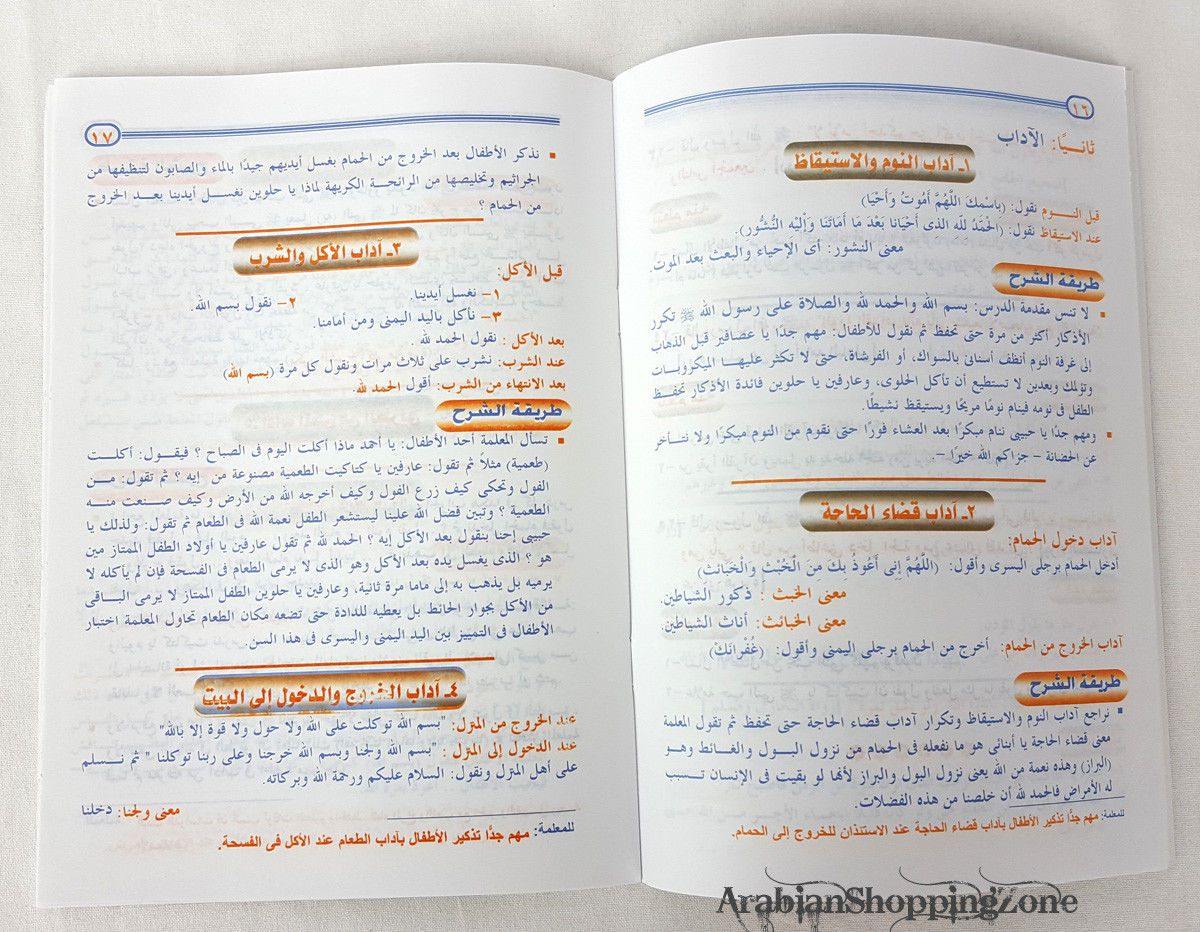 ١٦
ثانيًا: الآداب
١ـ آداب النوم والاستيقاظ
قبل النـــوم نقول: (باسْمِكَ اللَّهُمَّ أَمُوتُ وَأَحْيَا)
عند الاستيقاظ نقول: (الحَمْدُ للَّه الذى أَحْيَانا بَعْدَ مَا أَمَاتَنَا وَإِلَيْه النُّشُور).
معنى النشور: أى الإحياء والبعث بعد الموت.
طريقة الشرح
▪ لا تنس مقدمة الدرس: بسم الله والحمد لله والصلاة على رسول الله ﷺ تكرر
الأذكار أكثر من مرة حتى تحفظ ثم نقول للأطفال: مهم جدًا يا عصافير قبل الذهاب
إلى غرفة النوم أنظف أسنانى بالسواك، أو الفرشاة، حتى لا تكثر عليهــا الميكروبــات
وتؤلمك وبعدين لا تستطيع أن تأكل الحلوى، وعارفين يا حلوين فائدة الأذكار تحفــظ
الطفل فى نومه فينام نومًا مريحًا ويستيقظ نشيطًا.
▪ ومهم جدًا يا حبيبى ننام مبكرًا بعد العشاء فورًا حتى نقوم من النوم مبكرًا ولا نتــأخر
عن الحضانة – جزاكم الله خيرًا. –
٢ـ آداب قضاء الحاجة
آداب دخول الحمام:
أدخل الحمام برجلى اليسرى وأقول: (اللَّهُمَّ إِنى أَعُوذُ بِكَ مِنَ الْخُبْثِ وَالْخَبَائث)
معنى الخبث : ذكور الشياطين.
معنى الخبائث: أناث الشياطين.
آداب الخروج من الحمام: أخرج من الحمام برجلى اليمنى وأقول: (غُفْرانَكَ)
طريقة الشرح
▪ نراجع آداب النوم والاستيقاظ وتكرار آداب قضاء الحاجة حتى تحفظ ثم تقول المعلمة
معنى قضاء الحاجة يا أبنائى هو ما نفعله فى الحمام من نزول البــول والغــائط وهــو
(البراز) وهذه نعمة من الله يعنى نزول البول والبراز لأنها لو بقيت فى الإنسان تتسبب
له الأمراض فالحمد لله أن خلصنا من هذه الفضلات.
للمعلمة: مهم جدًا تذكير الأطفال بآداب قضاء الحاجة عند الاستئذان للخروج إلى الحمام.
١٧
▪ نذكر الأطفال بعد الخروج من الحمام بغسل أيديهم جيدًا بالماء والصابون لتنظيفها من
الجراثيم وتخليصها من الرائحة الكريهة لماذا يا حلوين نغســل أيدينا بعــد الخروج
من الحمام ؟
٣ـ آداب الأكل والشرب
قبل الأكل:
١– نغسل أيدينا. ٢– نقول بسم الله.
٣– نأكل باليد اليمنى ومن أمامنا.
بعد الأكل : نقول الحمد لله .
عند الشرب: نشرب على ثلاث مرات ونقول كل مرة (بسم الله)
بعد الانتهاء من الشرب: أقول الحمد لله.
طريقة الشرح
▪ تسأل المعلمة أحد الأطفال: يا أحمد ماذا أكلت اليوم فى الصباح ؟ فيقــول: أكلــت
(طعمية) مثلاً ثم تقول: عارفين يا كتاكيت الطعمية مصنوعة من إيه ؟ ثم تقول: مــن
الفول وتحكى كيف زرع الفول وكيف أخرجه الله من الأرض وكيف صــنعت منــه
الطعمية ؟ وتبين فضل الله علينا ليستشعر الطفل نعمة الله فى الطعام ثم تقول: ولذلك يا
حبيبى إحنا بنقول بعد الأكل إيه ؟ الحمد لله ثم تقول عارفين يا أولاد الطفل الممتاز مين
هو ؟ الذى يغسل يده بعد الأكل وهو الذى لا يرمى الطعام فى الفسحة فإن لم يأكله لا
يرميه بل يذهب به إلى ماما مرة ثانية، وعارفين يا حلوين الطفل الممتاز لا يرمى البــاقى
من الأكل بجوار الحائط بل يعطيه للدادة حتى تضعه مكان الطعام تحاول المعلمة اختبار
الأطفال فى التمييز بين اليد اليمنى واليسرى فى هذا السن.
٤ـ آداب الخروج والدخول إلى البيت
عند الخروج من المنزل: "بسم الله توكلت على الله ولا حول ولا قوة إلا بالله"
عند الدخول إلى المنزل : "بسم الله ولجنا وبسم الله خرجنا وعلى ربنا توكلنا" ثم نــسلم
على أهل المنزل ونقول: السلام عليكم ورحمة الله وبركاته.
معنى ولجنا: دخلنا
للمعلمة: مهم جدًّا تذكير الأطفال بآداب الطعام عند الأكل فى الفسحة.
ArabianShoppingZone